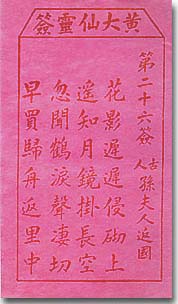 黃大仙靈簽
第二十六簽 古人 孫夫人返國
花影遲遲侵砌上
遙知月鏡掛長空
忽聞鶴淚聲淒切
早買歸舟返里中